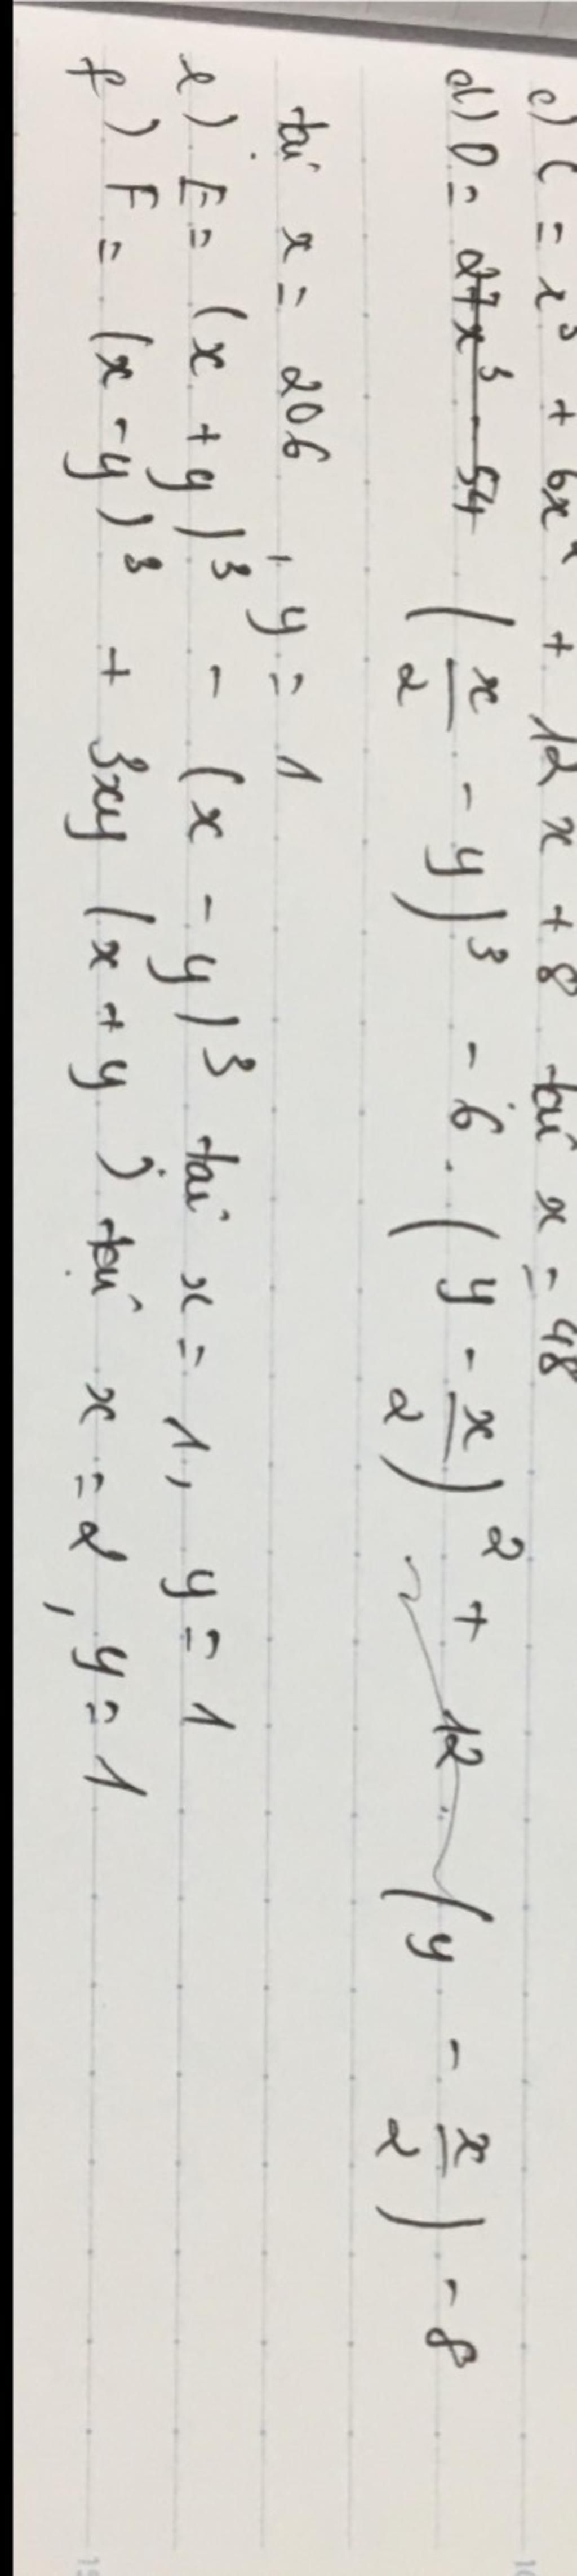 c) C = x³ + 6x² + 12x + 8 tại x = 48
d) D = ~~27x³ - 54~~ (x/2 - y)³ - 6 . (y - x/2)² + 12 . (y - x/2) - 8
tại x = 206, y = 1
e) E = (x + y)³ - (x - y)³ tại x = 1, y = 1
f) F = (x - y)³ + 3xy (x + y) tại x = 2, y = 1